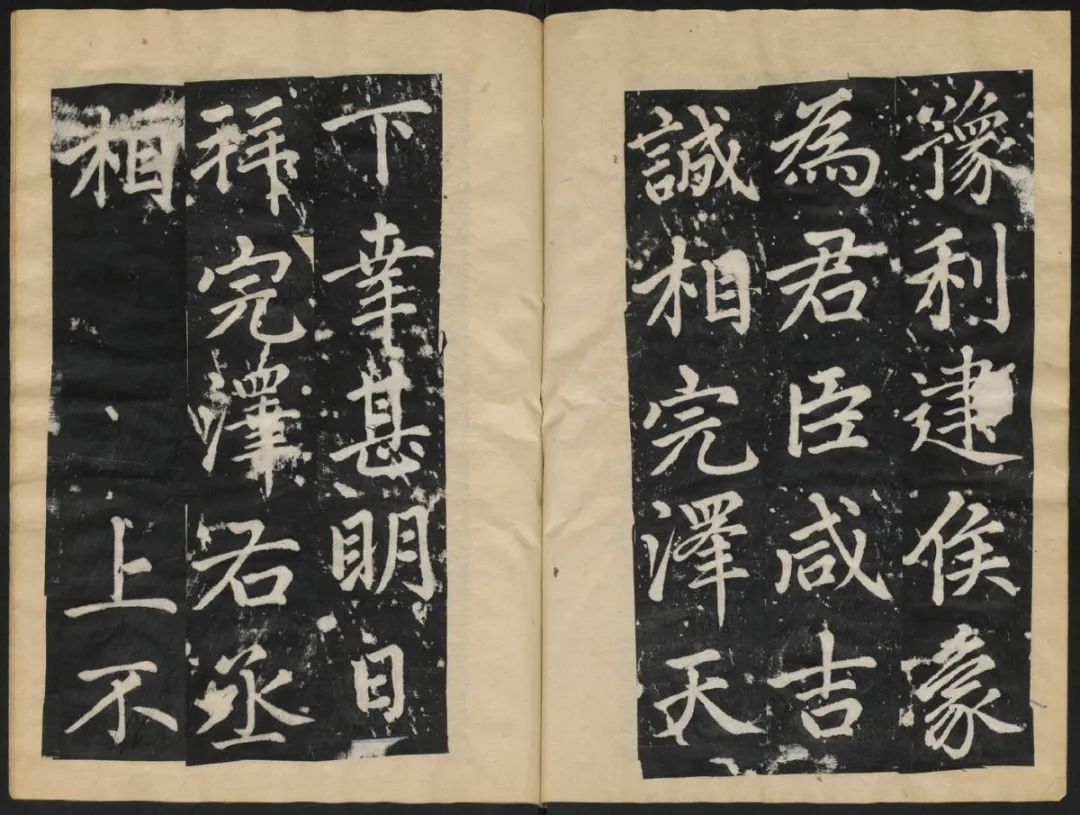 豫利建侯象
為君臣咸吉
誠相完澤天
下幸甚明日
拜完澤右丞
相上不